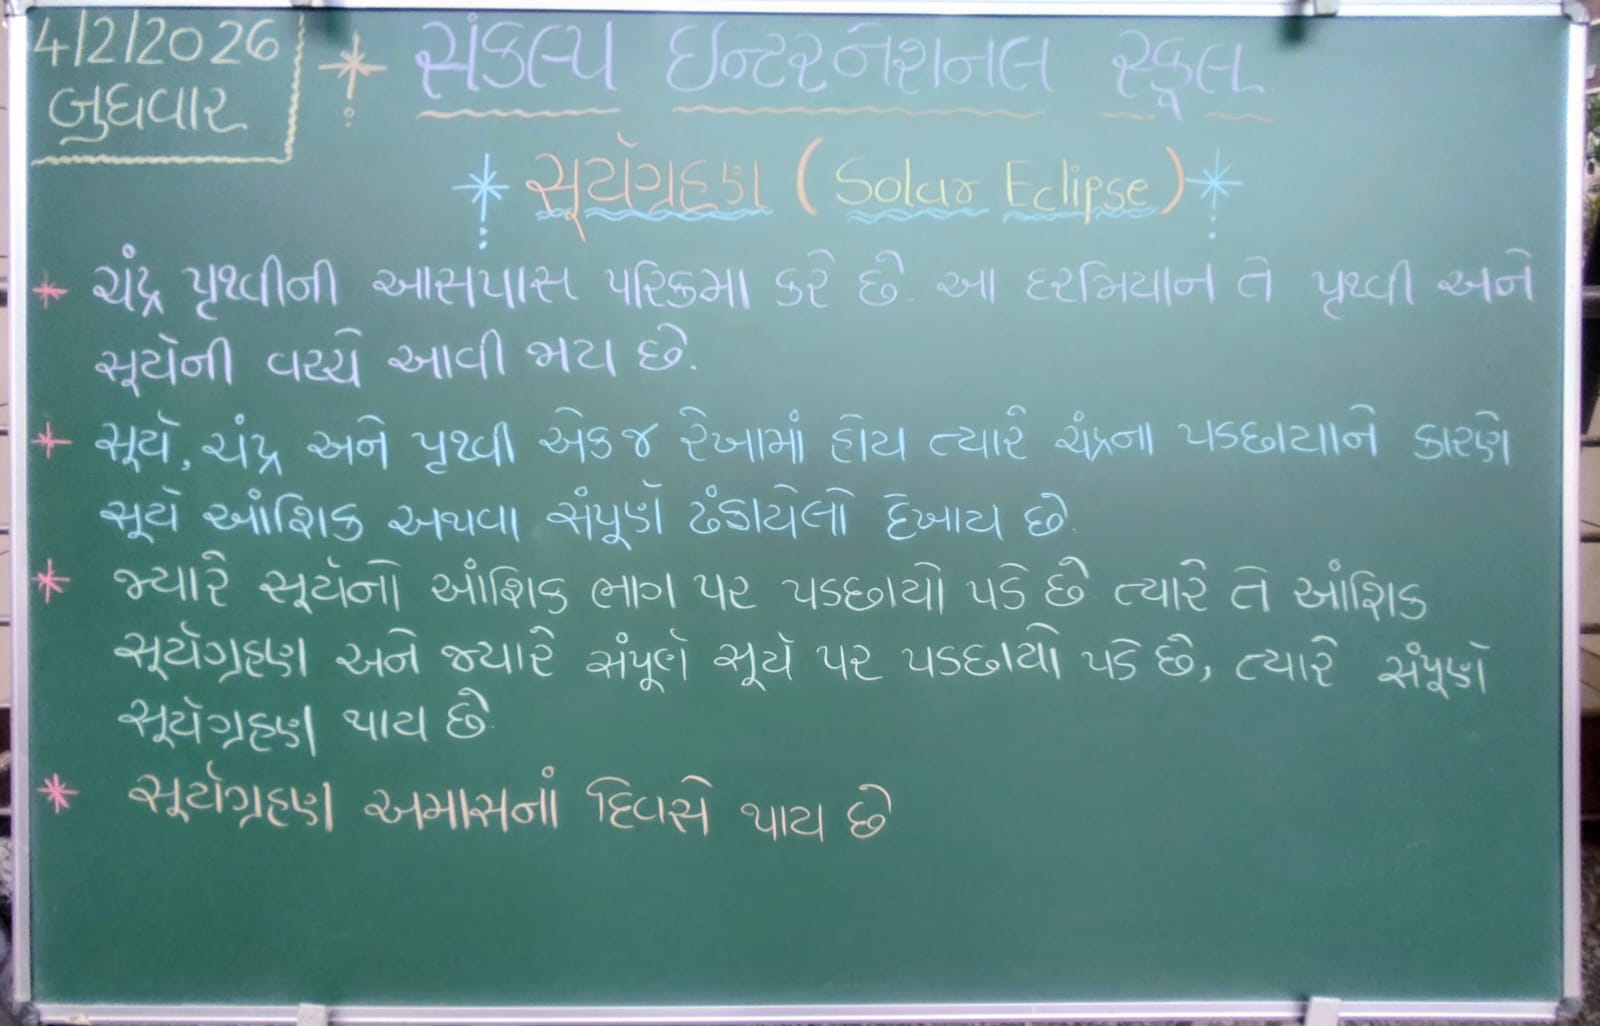 4/2/2026
બુધવાર
સંકલ્પ ઇન્ટરનેશનલ સ્કૂલ
સૂર્યગ્રહણ (Solar Eclipse)
ચંદ્ર પૃથ્વીની આસપાસ પરિક્રમા કરે છે. આ દરમિયાન તે પૃથ્વી અને
સૂર્યની વચ્ચે આવી જાય છે.
સૂર્ય, ચંદ્ર અને પૃથ્વી એક જ રેખામાં હોય ત્યારે ચંદ્રના પડછાયાને કારણે
સૂર્ય આંશિક અથવા સંપૂર્ણ ઢંકાયેલો દેખાય છે.
જ્યારે સૂર્યનો આંશિક ભાગ પર પડછાયો પડે છે ત્યારે તે આંશિક
સૂર્યગ્રહણ અને જ્યારે સંપૂર્ણ સૂર્ય પર પડછાયો પડે છે, ત્યારે સંપૂર્ણ
સૂર્યગ્રહણ થાય છે
સૂર્યગ્રહણ અમાસનાં દિવસે થાય છે